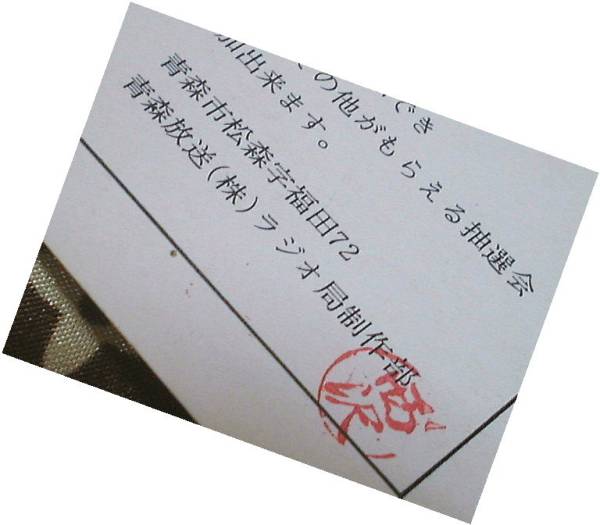 でき
の他がもらえる抽選会
加出来ます。
青森市松森字福田72
青森放送(株)ラジオ局制作部